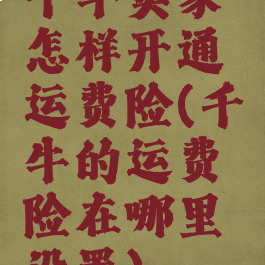 千牛卖家
怎样开通
运费险(千
牛的运费
险在哪里
设置)